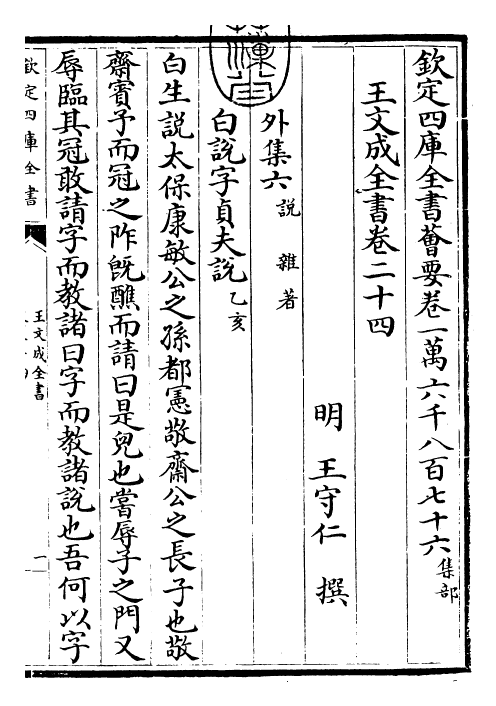 欽定四庫全書薈要卷一萬六千八百七十六集部
王文成全書卷二十四
明 王守仁 撰
外集六 說 雜著
白說字貞夫說 乙亥
白生說太保康敏公之孫都憲敬齋公之長子也敬
齋賓予而冠之阼既醮而請曰是兒也嘗辱子之門又
辱臨其冠敢請字而教諸曰字而教諸說也吾何以字
欽定四庫全書
王文成全書
一